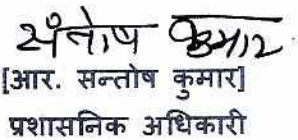 संतोष कुमार
[आर. सन्तोष कुमार]
प्रशासनिक अधिकारी